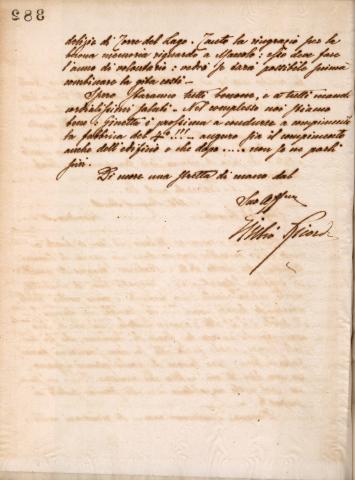 delizie di Torre del Lago. Tanto la ringrazio per la
buona memoria riguardo a Manolo: esso deve fare
l'anno di volontario e vedrò se sarà possibile prima
combinare la gita costì.
Spero staranno tutti benone, e a tutti mando
cordialissimi saluti. Nel complesso noi stiamo
bene: Ginetta è prossima a condurre a compimento
la fabbrica del 4º!!! auguro sia il compimento
anche dell'edificio e che dopo..... non se ne parli
più.
Di cuore una stretta di mano dal
Suo aff
Giulio Ricordi